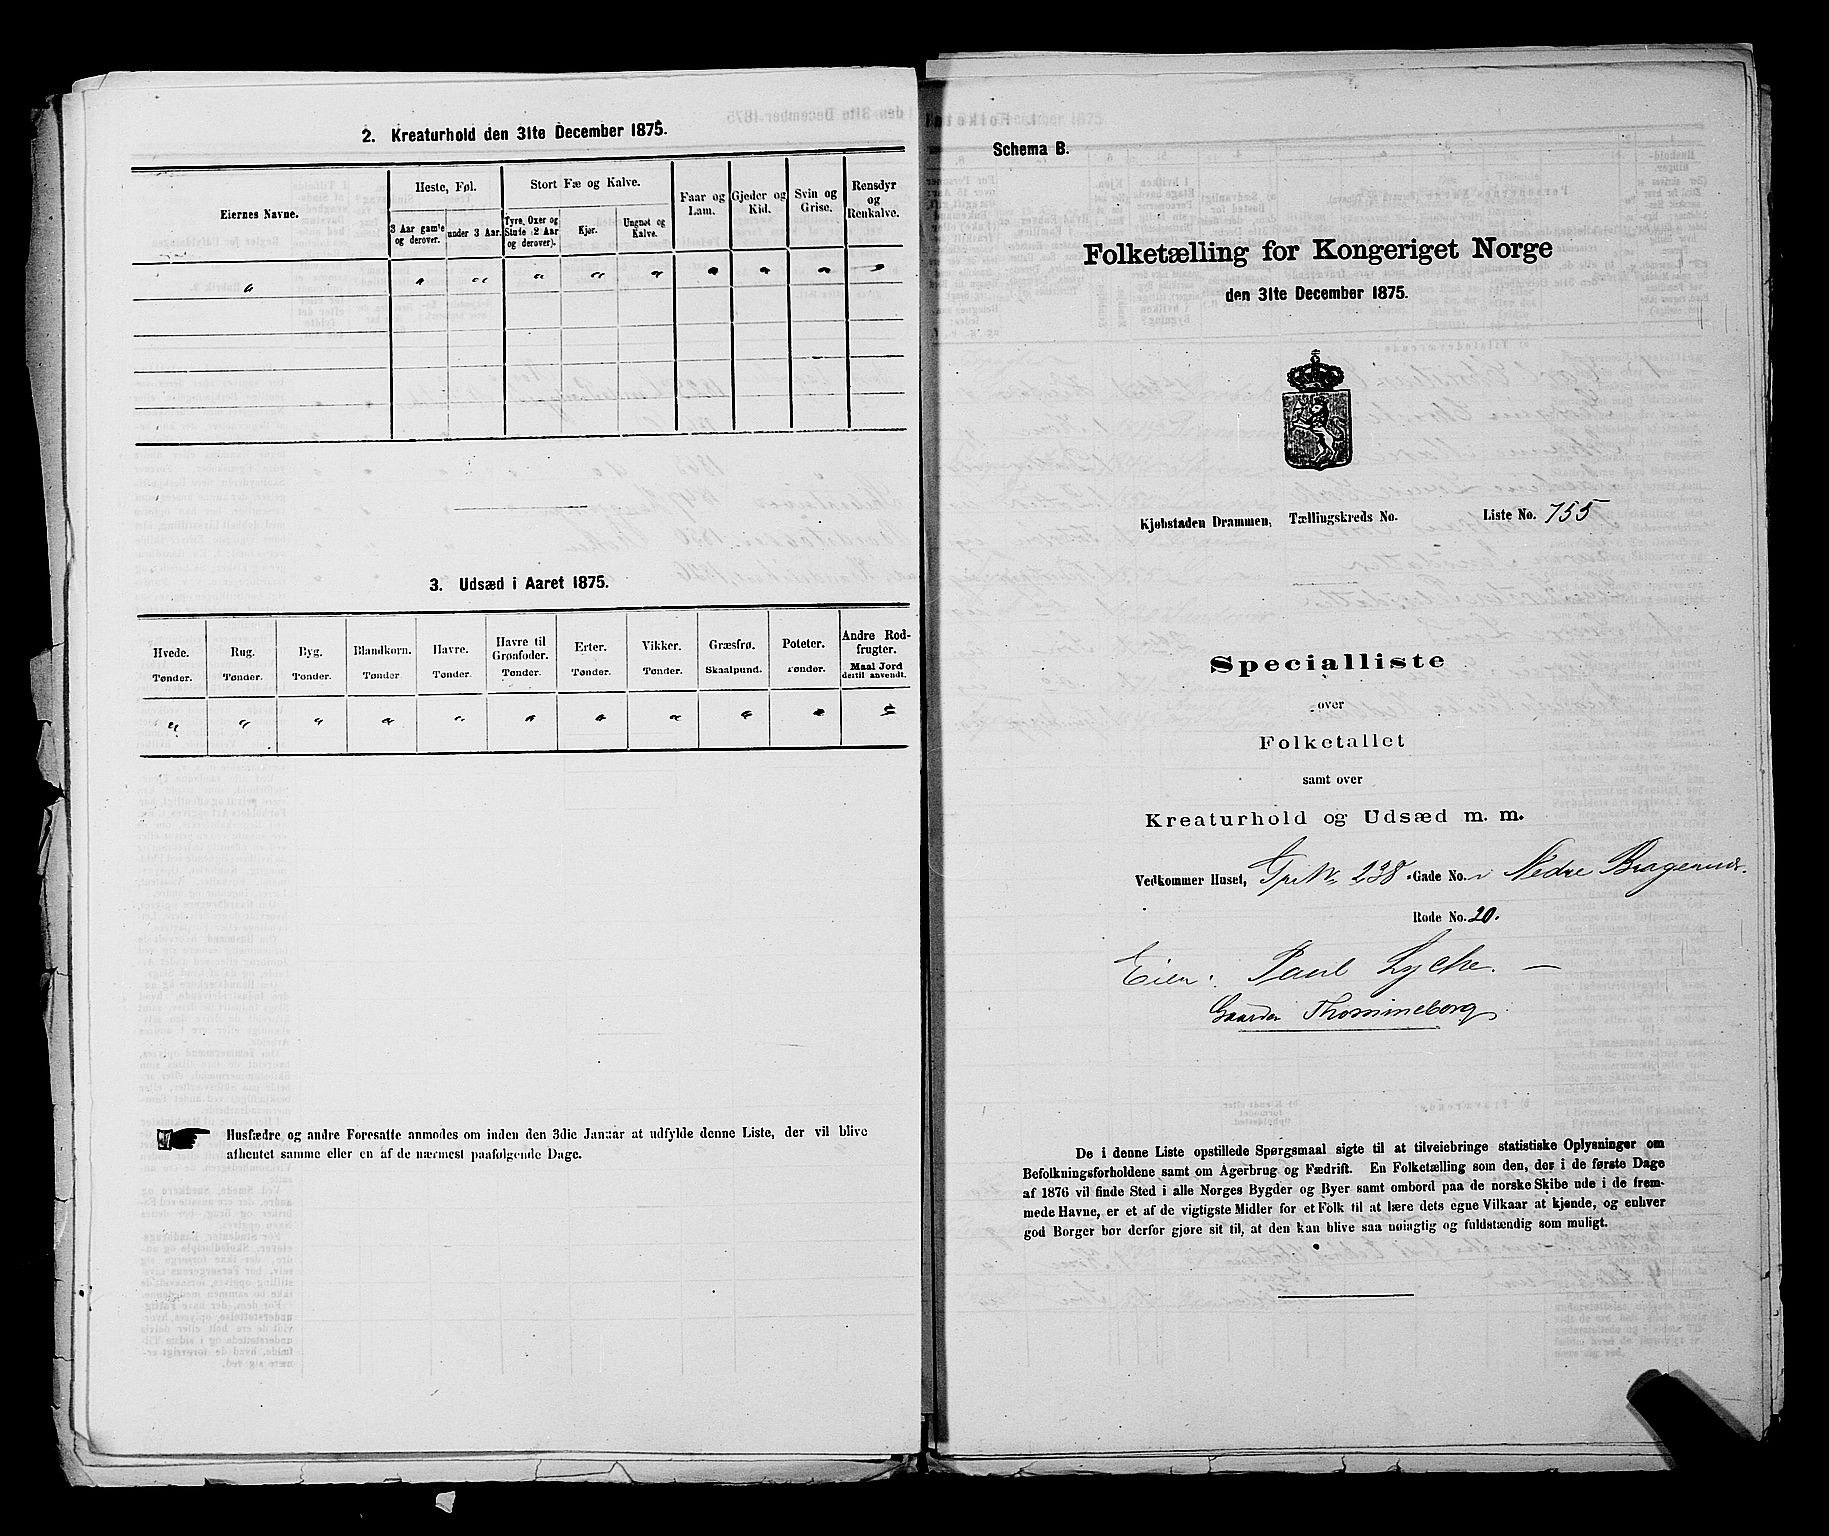 2. Kreaturhold den 31te December 1875.
Eiernes Navne.
Heste, Føl.
Stort Fæ og Kalve.
Faar og Lam.
Gjeder og Kid.
Svin og Grise.
Rensdyr og Renkalve.
3 Aar gamle og derover.
under 3 Aar.
Tyre, Oxer og Stute (2 Aar og derover).
Kjør.
Ungnøt og Kalve.
" " " " " " " " " "
3. Udsæd i Aaret 1875.
Hvede. Rug. Byg. Blandkorn. Havre. Havre til Grønfoder. Erter. Vikker. Græsfrø. Poteter. Andre Rodfrugter.
Tønder. Tønder. Tønder. Tønder Tønder. Tønder. Tønder. Tønder. Skaalpund. Tønder. Maal Jord dertil anvendt.
" " " " " " " " " " "
Husfædre og andre Foresatte anmodes om inden den 3die Januar at udfylde denne Liste, der vil blive
afhentet samme eller en af de nærmest paafølgende Dage.
Schema B.
Folketælling for Kongeriget Norge
den 31te December 1875.
Kjøbstaden Drammen, Tællingskreds No. Liste No. 755
Specialliste
over
Folketallet
samt over
Kreaturhold og Udsæd m. m.
Vedkommer Huset, 238 Gade No. i Nedre Bragernæs.
Rode No. 20.
Eier: Paul Lyche.
Gaarden Thomineborg
De i denne Liste opstillede Spørgsmaal sigte til at tilveiebringe statistiske Oplysninger om
Befolkningsforholdene samt om Agerbrug og Fædrift. En Folketælling som den, der i de første Dage
af 1876 vil finde Sted i alle Norges Bygder og Byer samt ombord paa de norske Skibe ude i de frem-
mede Havne, er et af de vigtigste Midler for et Folk til at lære dets egne Vilkaar at kjende, og enhver
god Borger bør derfor gjøre sit til, at den kan blive saa nøiagtig og fuldstændig som muligt.